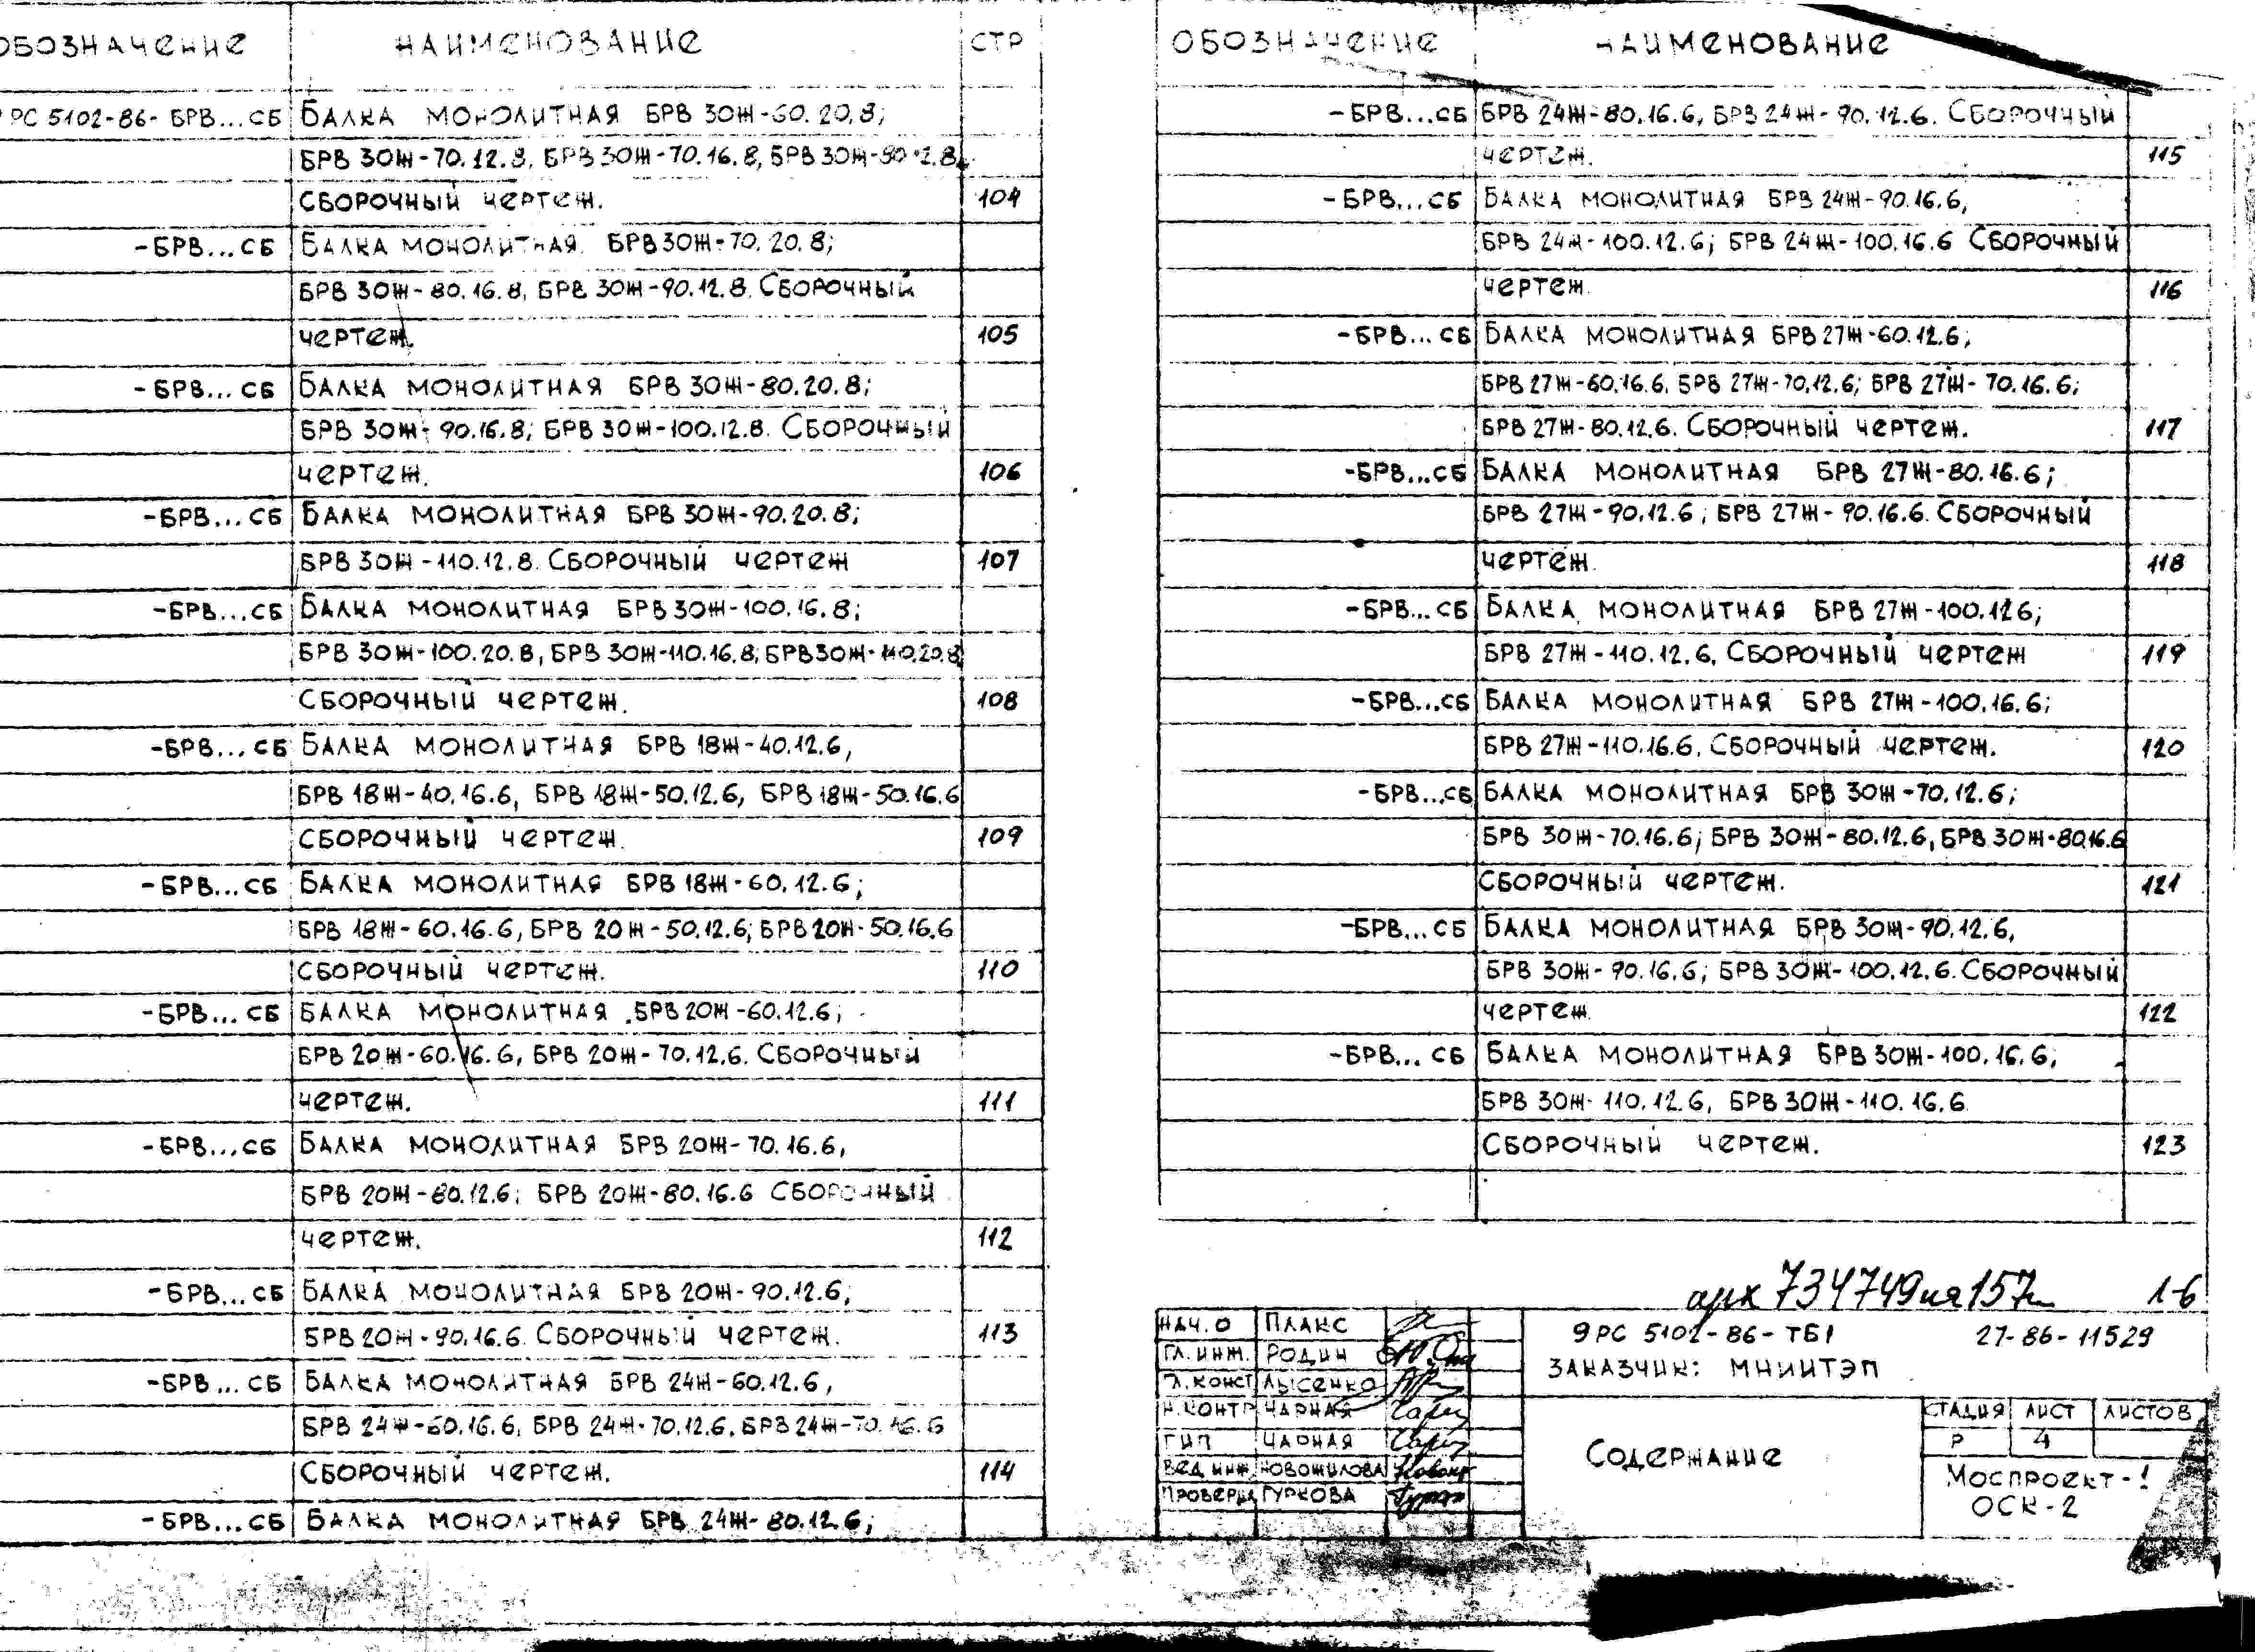 ОБОЗНАЧЕНИЕ НАИМЕНОВАНИЕ СТР
РС 5102-86- БРВ...СБ БАЛКА МОНОЛИТНАЯ БРВ 30Ж-60.20.8;
БРВ 30Ж-70.12.8, БРВ 30Ж-70.16.8, БРВ 30Ж-80.12.8.
СБОРОЧНЫЙ ЧЕРТЕЖ. 104
-БРВ...СБ БАЛКА МОНОЛИТНАЯ БРВ 30Ж-70.20.8;
БРВ 30Ж-80.16.8, БРВ 30Ж-90.12.8. СБОРОЧНЫЙ
ЧЕРТЕЖ. 105
-БРВ...СБ БАЛКА МОНОЛИТНАЯ БРВ 30Ж-80.20.8;
БРВ 30Ж-90.16.8; БРВ 30Ж-100.12.8. СБОРОЧНЫЙ
ЧЕРТЕЖ. 106
-БРВ...СБ БАЛКА МОНОЛИТНАЯ БРВ 30Ж-90.20.8;
БРВ 30Ж-110.12.8. СБОРОЧНЫЙ ЧЕРТЕЖ 107
-БРВ...СБ БАЛКА МОНОЛИТНАЯ БРВ 30Ж-100.16.8;
БРВ 30Ж-100.20.8, БРВ 30Ж-110.16.8; БРВ 30Ж-110.20.8
СБОРОЧНЫЙ ЧЕРТЕЖ. 108
-БРВ...СБ БАЛКА МОНОЛИТНАЯ БРВ 18Ж-40.12.6,
БРВ 18Ж-40.16.6, БРВ 18Ж-50.12.6, БРВ 18Ж-50.16.6
СБОРОЧНЫЙ ЧЕРТЕЖ. 109
-БРВ...СБ БАЛКА МОНОЛИТНАЯ БРВ 18Ж-60.12.6;
БРВ 18Ж-60.16.6, БРВ 20Ж-50.12.6; БРВ 20Ж-50.16.6
СБОРОЧНЫЙ ЧЕРТЕЖ. 110
-БРВ...СБ БАЛКА МОНОЛИТНАЯ БРВ 20Ж-60.12.6;
БРВ 20Ж-60.16.6, БРВ 20Ж-70.12.6. СБОРОЧНЫЙ
ЧЕРТЕЖ. 111
-БРВ...СБ БАЛКА МОНОЛИТНАЯ БРВ 20Ж-70.16.6,
БРВ 20Ж-80.12.6; БРВ 20Ж-80.16.6 СБОРОЧНЫЙ
ЧЕРТЕЖ. 112
-БРВ...СБ БАЛКА МОНОЛИТНАЯ БРВ 20Ж-90.12.6;
БРВ 20Ж-90.16.6. СБОРОЧНЫЙ ЧЕРТЕЖ. 113
-БРВ...СБ БАЛКА МОНОЛИТНАЯ БРВ 24Ж-60.12.6,
БРВ 24Ж-60.16.6, БРВ 24Ж-70.12.6, БРВ 24Ж-70.16.6
СБОРОЧНЫЙ ЧЕРТЕЖ. 114
-БРВ...СБ БАЛКА МОНОЛИТНАЯ БРВ 24Ж-80.12.6;
ОБОЗНАЧЕНИЕ НАИМЕНОВАНИЕ
-БРВ...СБ БРВ 24Ж-80.16.6, БРВ 24Ж-90.12.6. СБОРОЧНЫЙ
ЧЕРТЕЖ. 115
-БРВ...СБ БАЛКА МОНОЛИТНАЯ БРВ 24Ж-90.16.6,
БРВ 24Ж-100.12.6; БРВ 24Ж-100.16.6 СБОРОЧНЫЙ
ЧЕРТЕЖ. 116
-БРВ...СБ БАЛКА МОНОЛИТНАЯ БРВ 27Ж-60.12.6;
БРВ 27Ж-60.16.6, БРВ 27Ж-70.12.6; БРВ 27Ж-70.16.6;
БРВ 27Ж-80.12.6. СБОРОЧНЫЙ ЧЕРТЕЖ. 117
-БРВ...СБ БАЛКА МОНОЛИТНАЯ БРВ 27Ж-80.16.6;
БРВ 27Ж-90.12.6; БРВ 27Ж-90.16.6. СБОРОЧНЫЙ
ЧЕРТЕЖ. 118
-БРВ...СБ БАЛКА МОНОЛИТНАЯ БРВ 27Ж-100.12.6;
БРВ 27Ж-110.12.6. СБОРОЧНЫЙ ЧЕРТЕЖ 119
-БРВ...СБ БАЛКА МОНОЛИТНАЯ БРВ 27Ж-100.16.6;
БРВ 27Ж-110.16.6. СБОРОЧНЫЙ ЧЕРТЕЖ. 120
-БРВ...СБ БАЛКА МОНОЛИТНАЯ БРВ 30Ж-70.12.6;
БРВ 30Ж-70.16.6; БРВ 30Ж-80.12.6, БРВ 30Ж-80.16.6
СБОРОЧНЫЙ ЧЕРТЕЖ. 121
-БРВ...СБ БАЛКА МОНОЛИТНАЯ БРВ 30Ж-90.12.6,
БРВ 30Ж-90.16.6; БРВ 30Ж-100.12.6. СБОРОЧНЫЙ
ЧЕРТЕЖ. 122
-БРВ...СБ БАЛКА МОНОЛИТНАЯ БРВ 30Ж-100.16.6;
БРВ 30Ж-110.12.6, БРВ 30Ж-110.16.6
СБОРОЧНЫЙ ЧЕРТЕЖ. 123
арх 734749 на 157л 1-6
НАЧ.О ПЛАКС
ГЛ. ИНЖ. РОДИН
ГЛ. КОНСТ ЛЫСЕНКО
Н. КОНТР ЧАРНАЯ
ГИП ЧАРНАЯ
ВЕД ИНЖ НОВОЖИЛОВА
ПРОВЕРИЛ ГУРКОВА
9 РС 5102-86-ТБ1 27-86-11529
ЗАКАЗЧИК: МНИИТЭП
СОДЕРЖАНИЕ
СТАДИЯ ЛИСТ ЛИСТОВ
Р 4
МОСПРОЕКТ-1
ОСК-2